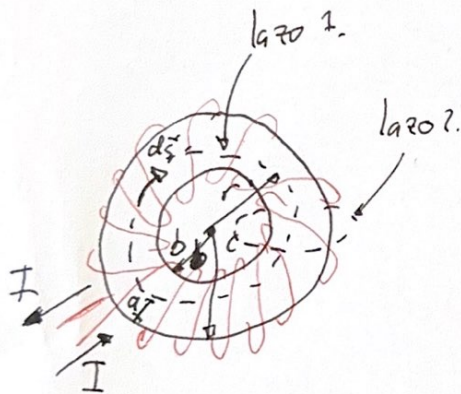 lazo 1.
lazo 2.
ds
r
b
c
a
I
I